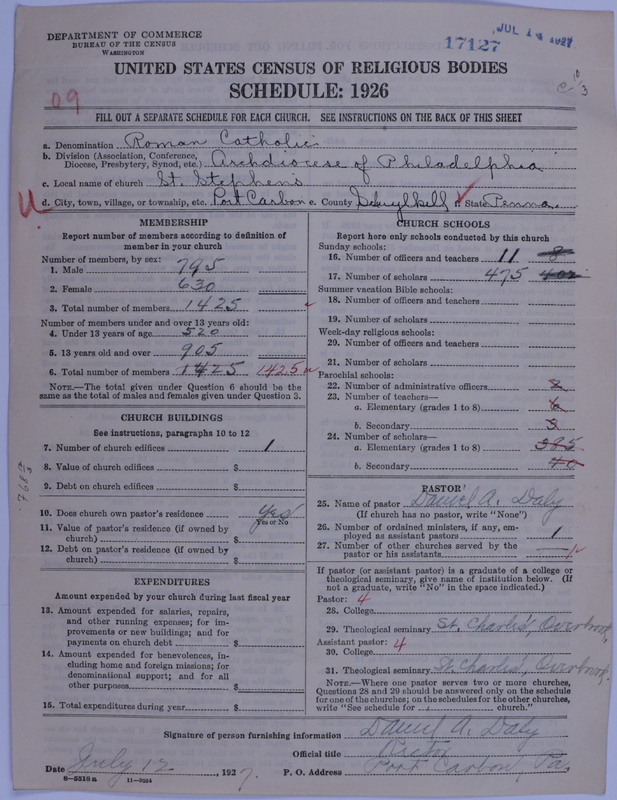 DEPARTMENT OF COMMERCE
BUREAU OF THE CENSUS
WASHINGTON
17127
JUL 14 1927
UNITED STATES CENSUS OF RELIGIOUS BODIES
SCHEDULE: 1926
09
FILL OUT A SEPARATE SCHEDULE FOR EACH CHURCH. SEE INSTRUCTIONS ON THE BACK OF THIS SHEET
a. Denomination Roman Catholic
b. Division (Association, Conference, Diocese, Presbytery, Synod, etc.) Archdiocese of Philadelphia
c. Local name of church St. Stephen's
d. City, town, village, or township, etc. Port Carbon e. County Schuylkill f. State Penna.
MEMBERSHIP
Report number of members according to definition of
member in your church
Number of members, by sex:
1. Male 795
2. Female 630
3. Total number of members 1425
Number of members under and over 13 years old:
4. Under 13 years of age 520
5. 13 years old and over 905
6. Total number of members 1425 1425
NOTE.—The total given under Question 6 should be the
same as the total of males and females given under Question 3.
CHURCH BUILDINGS
See instructions, paragraphs 10 to 12
7. Number of church edifices 1
8. Value of church edifices $
9. Debt on church edifices $
10. Does church own pastor's residence Yes
Yes or No
11. Value of pastor's residence (if owned by
church) $
12. Debt on pastor's residence (if owned by
church) $
EXPENDITURES
Amount expended by your church during last fiscal year
13. Amount expended for salaries, repairs,
and other running expenses; for im-
provements or new buildings; and for
payments on church debt $
14. Amount expended for benevolences, in-
cluding home and foreign missions; for
denominational support; and for all
other purposes $
15. Total expenditures during year $
CHURCH SCHOOLS
Report here only schools conducted by this church
Sunday schools:
16. Number of officers and teachers 11 8
17. Number of scholars 475 402
Summer vacation Bible schools:
18. Number of officers and teachers
19. Number of scholars
Week-day religious schools:
20. Number of officers and teachers
21. Number of scholars
Parochial schools:
22. Number of administrative officers 2
23. Number of teachers—
a. Elementary (grades 1 to 8) 6
b. Secondary 3
24. Number of scholars—
a. Elementary (grades 1 to 8) 385
b. Secondary 40
PASTOR
25. Name of pastor Daniel A. Daly
(If church has no pastor, write "None")
26. Number of ordained ministers, if any, em-
ployed as assistant pastors 1
27. Number of other churches served by the
pastor or his assistants
If pastor (or assistant pastor) is a graduate of a college or
theological seminary, give name of institution below. (If
not a graduate, write "No" in the space indicated.)
Pastor: 4
28. College
29. Theological seminary St. Charles', Overbrook
Assistant pastor: 4
30. College
31. Theological seminary St. Charles', Overbrook
NOTE.—Where one pastor serves two or more churches,
Questions 28 and 29 should be answered only on the schedule
for one of the churches; on the schedules for the other churches,
write "See schedule for church."
Signature of person furnishing information Daniel A. Daly
Official title Rector
Date July 12, 1927. P. O. Address Port Carbon, Pa.
8-5518a 11-9024